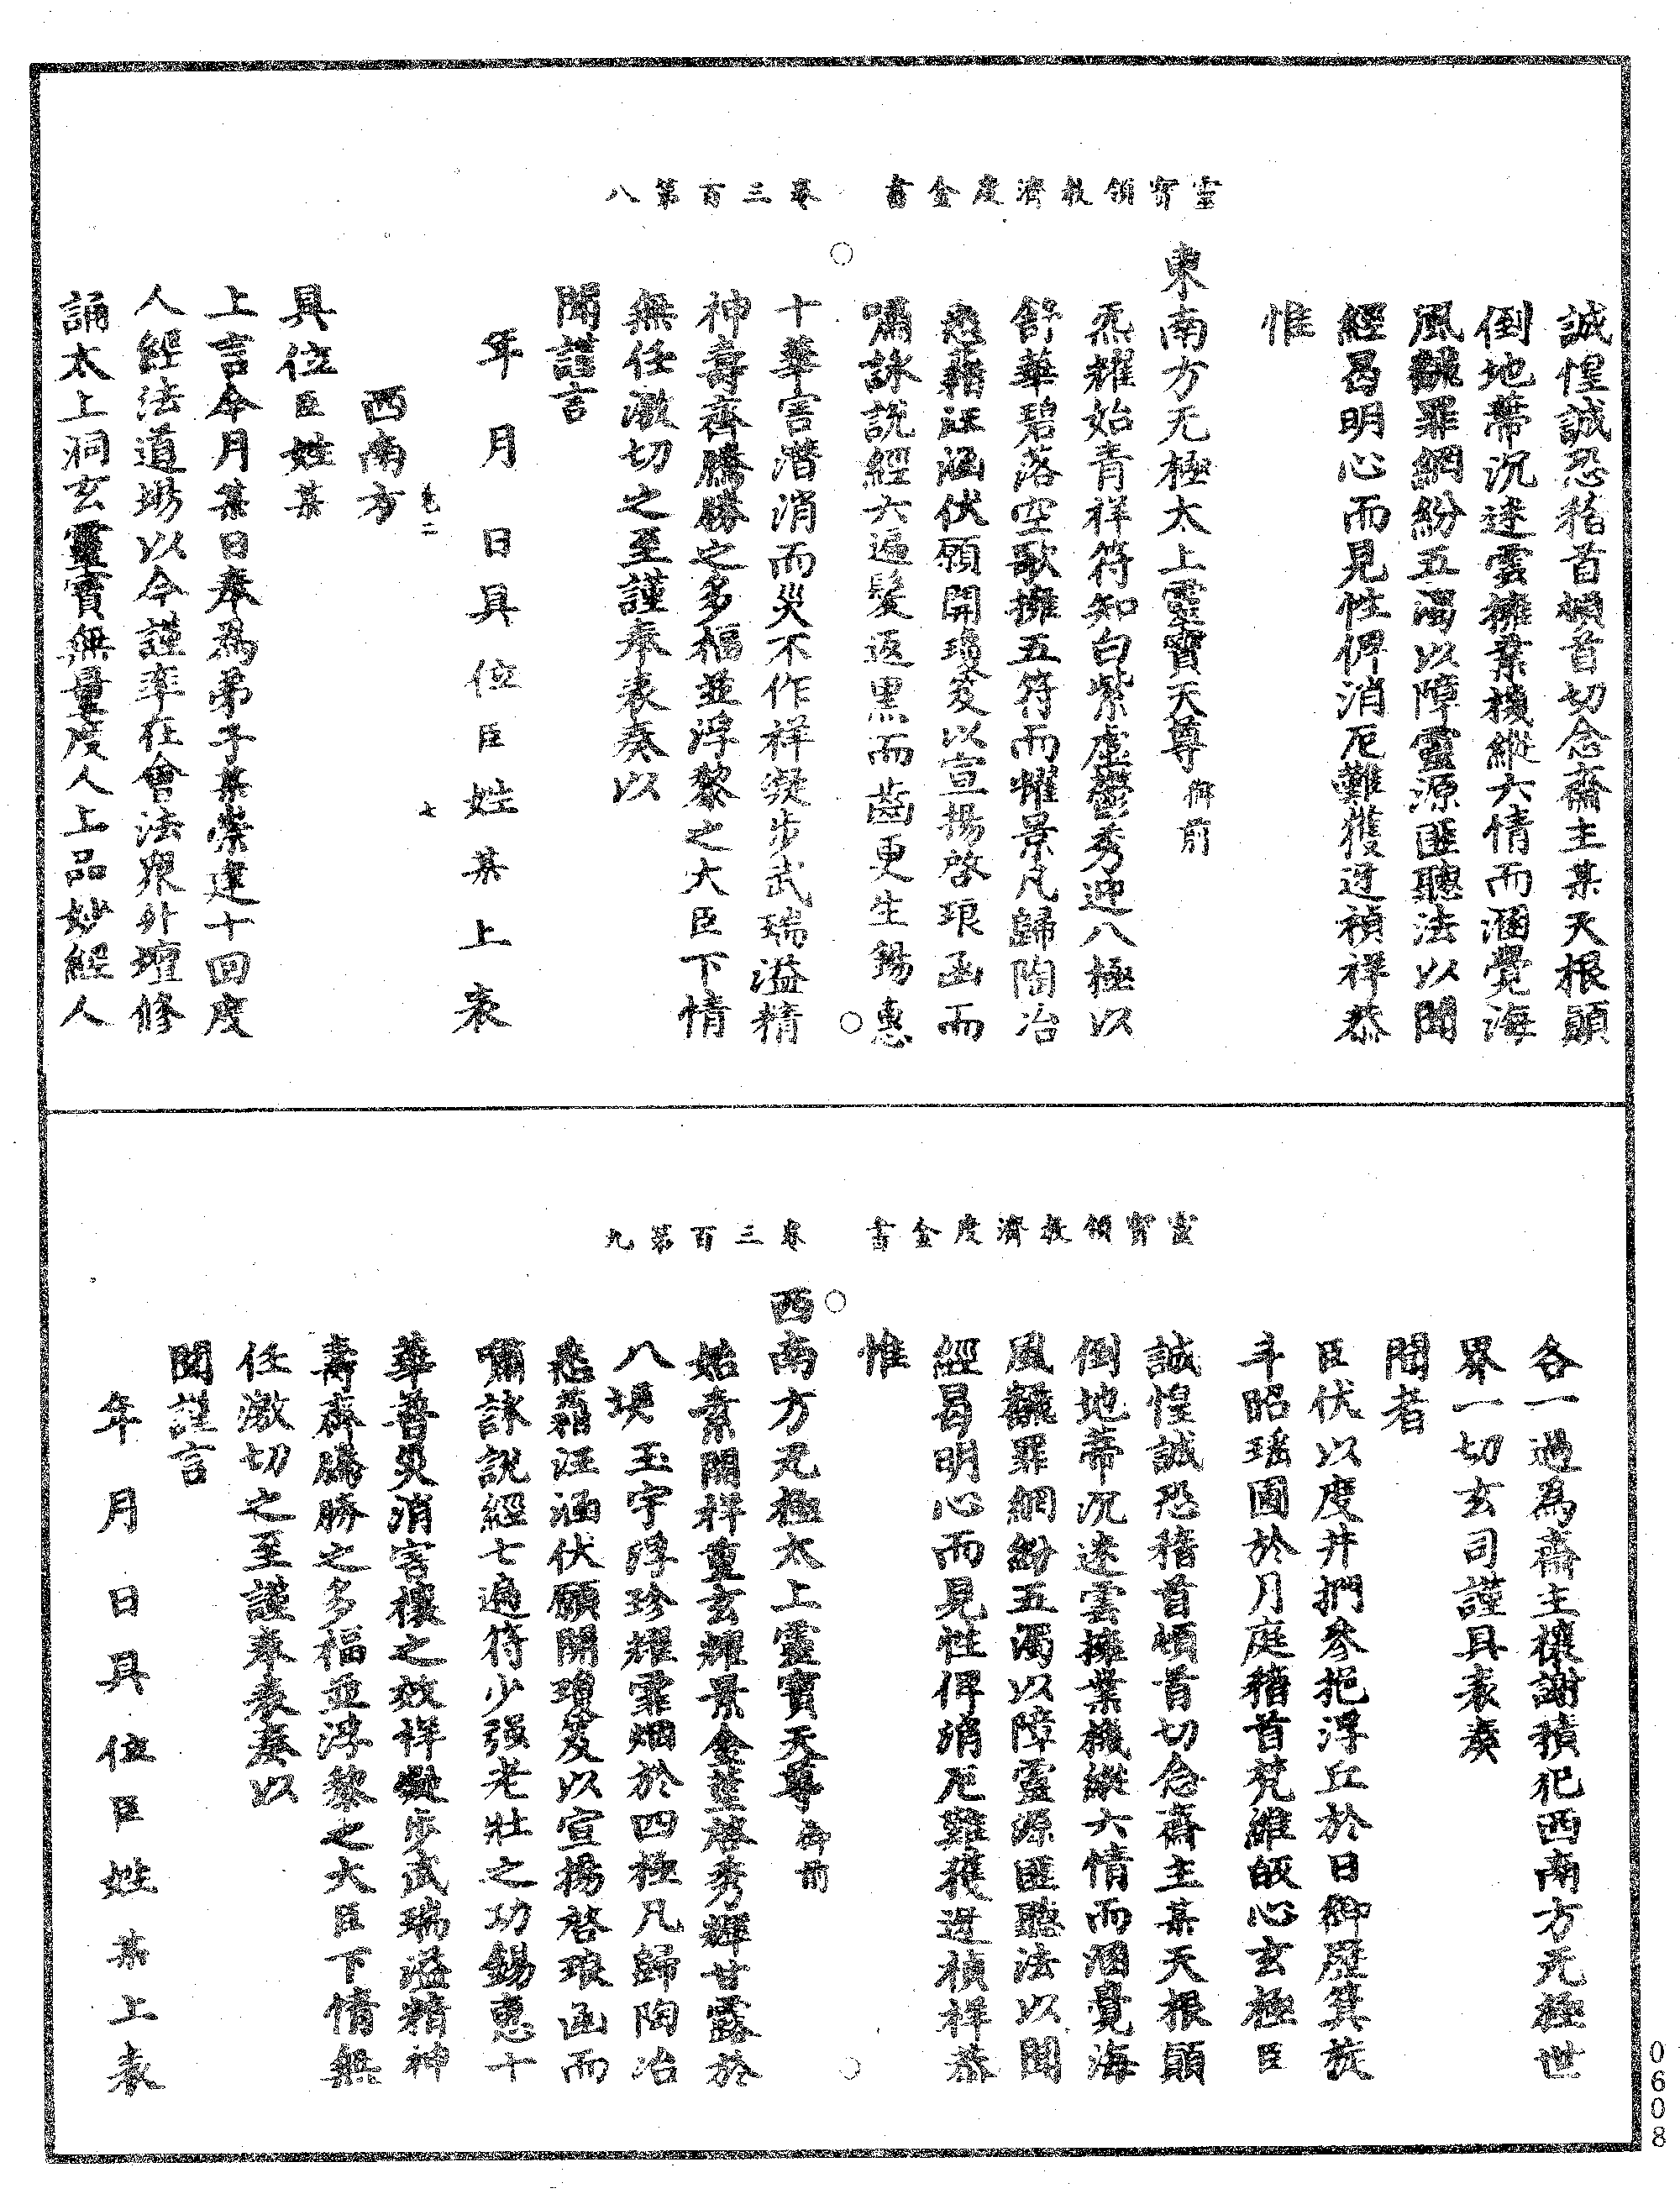 靈寶領教濟度金書　卷三百第八
誠惶誠恐稽首頓首切念齋主某天根顛
倒地蒂沉迷雲擁業機縱六情而涸覺海
風飜罪網紛五濁以障靈源匪聽法以聞
經曷明心而見性俾消厄難獲迓禎祥恭
惟
東南方无極太上靈寶天尊御前
炁耀始青祥符知白紫虛鬱秀迎八極以
舒華碧落空歌擁五符而耀景凡歸陶冶
悉藉汪涵伏願開瓊笈以宣揚啓琅函而
嘯詠說經六遍髮返黑而齒更生錫惠
十華害潛消而災不作祥凝步武瑞溢精
神壽齊騰勝之多福並浮黎之大臣下情
無任激切之至謹奉表奏以
聞謹言
年　月　日具　位臣姓某上表
卷二　七
西南方
具位臣姓某
上言今月某日奉為弟子某崇建十回度
人經法道場以今謹率在會法眾升壇修
誦太上洞玄靈寶無量度人上品妙經人
靈寶領教濟度金書　卷三百第九
各一過為齋主禳謝積犯西南方无極世
界一切玄司謹具表奏
聞者
臣伏以度井捫參挹浮丘於日御歷箕旅
斗昭瑤圃於月庭稽首梵維皈心玄極臣
誠惶誠恐稽首頓首切念齋主某天根顛
倒地蒂沉迷雲擁業機縱六情而涸覺海
風飜罪網紛五濁以障靈源匪聽法以聞
經曷明心而見性俾消厄難獲迓禎祥恭
惟
西南方无極太上靈寶天尊御前
始素開祥重玄耀景金堇啓秀輝甘露於
八埏玉宇浮珍耀霏烟於四極凡歸陶冶
悉藉汪涵伏願開瓊笈以宣揚啓琅函而
嘯詠說經七遍符少强老壯之功錫惠十
華普災消害禳之效祥凝步武瑞溢精神
壽齊騰勝之多福並浮黎之大臣下情無
任激切之至謹奉表奏以
聞謹言
年　月　日具　位臣姓某上表
0608